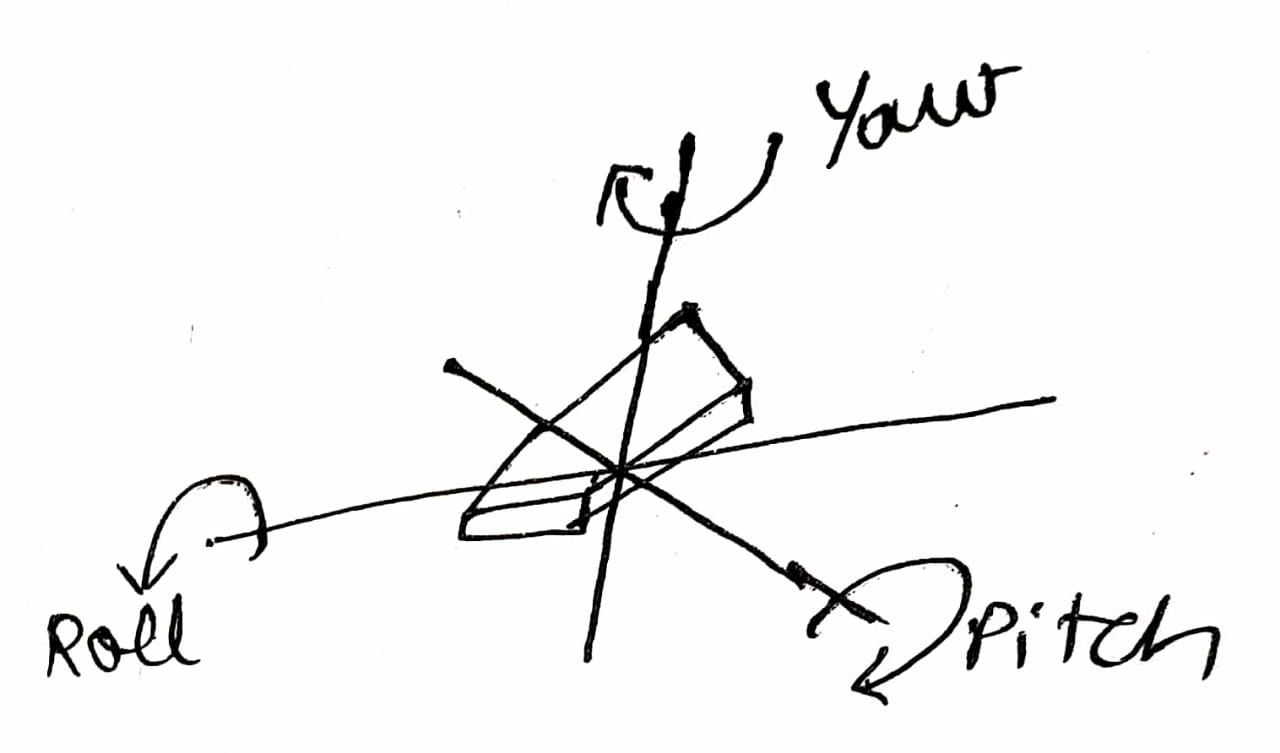 Yaw
Roll
Pitch